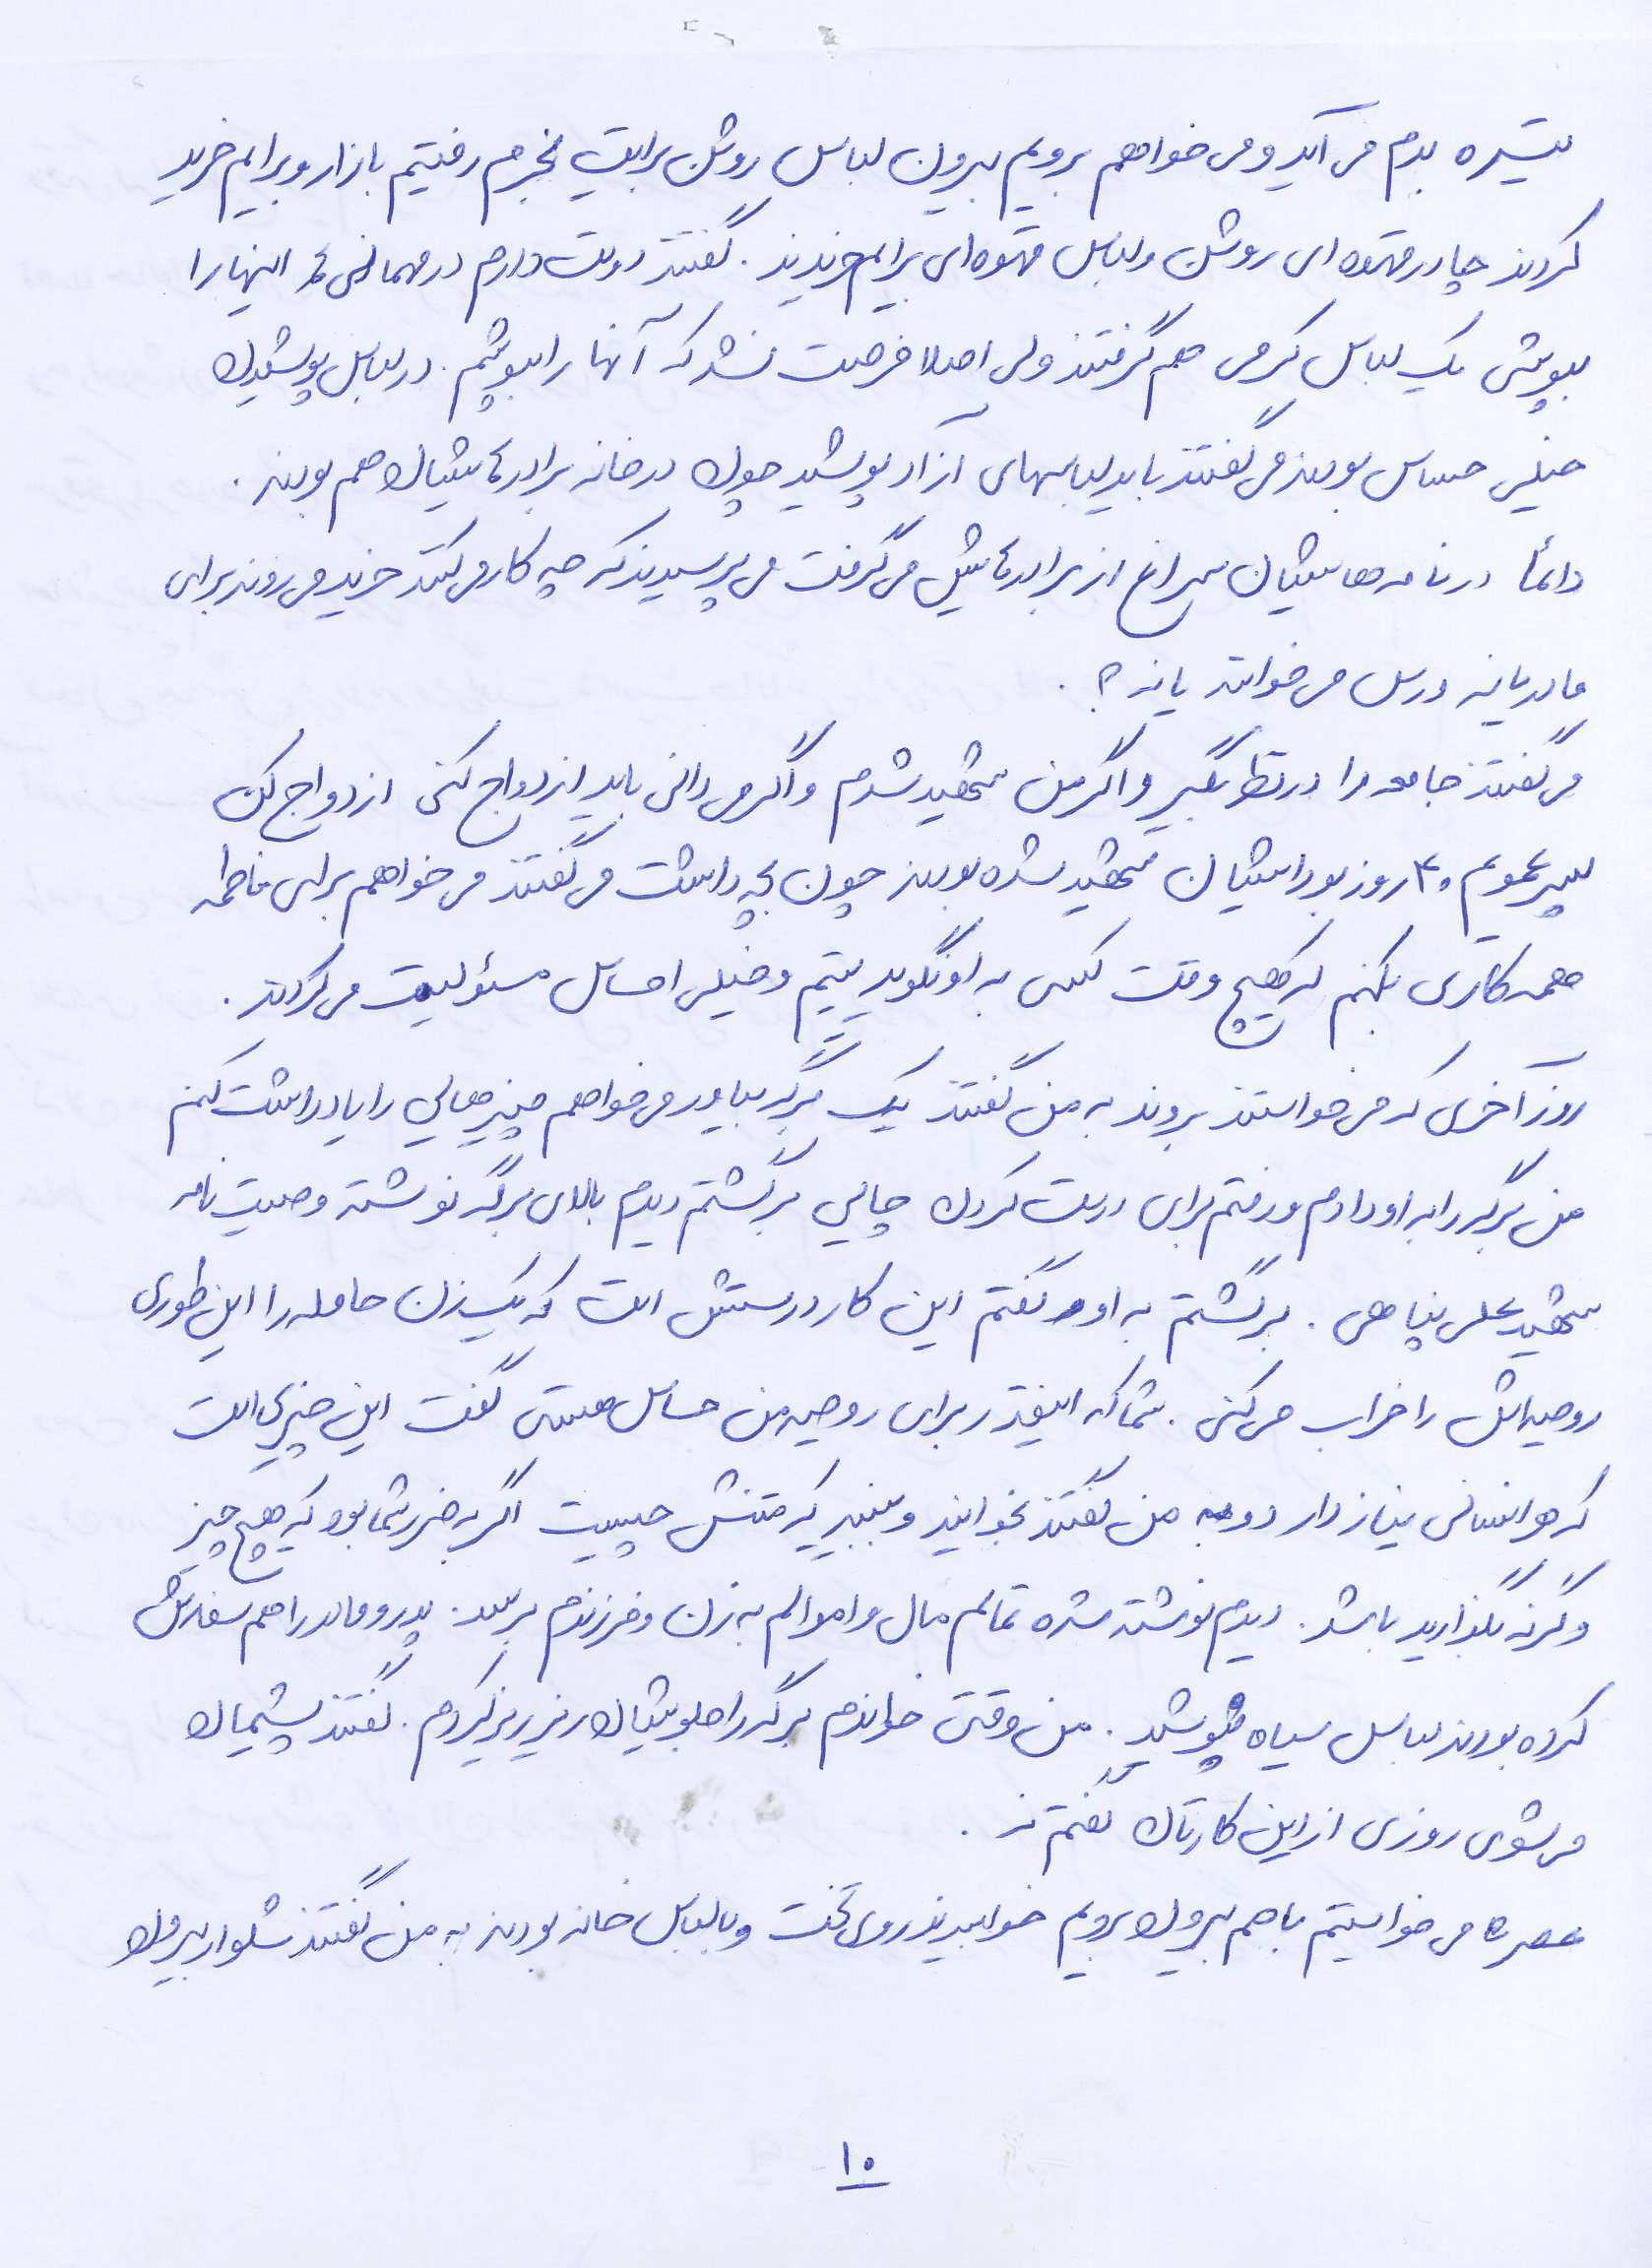 تیره بدم می آید و می خواهم برویم بیرون لباس روشن برایت بخرم رفتیم بازار و برایم خرید
کردند چادر قهوه ای روشن و لباس قهوه ای برایم خریدند. گفتند دوست دارم در مهمانی ها اینها را
بپوشی یک لباس کرمی هم گرفتند ولی اصلا فرصت نشد که آنها را بپوشم. در لباس پوشیدن
خیلی حساس بودند می گفتند باید لباسهای آزاد پوشید چون در خانه برادرهایشان هم بودند.
دائماً در نامه هایشان سراغ از برادرهایش می گرفت می پرسیدند که چه کار می کنند خرید می روند برای
مادر یا نه درس می خوانند یا نه؟.
می گفتند جامعه را در نظر بگیر و اگر من شهید شدم و اگر می دانی باید ازدواج کنی ازدواج کن
پسر عمویم ۴۰ روز بود ایشان شهید شده بودند چون بچه داشت می گفتند می خواهم برای فاطمه
همه کاری بکنم که هیچ وقت کسی به او نگوید یتیم و خیلی احساس مسئولیت می کردند.
روز آخری که می خواستند بروند به من گفتند یک برگه بیاور می خواهم چیزهایی را یادداشت کنم
من برگه را به او دادم و رفتم برای درست کردن چایی برگشتم دیدم بالای برگه نوشته وصیت نامه
شهید علی پناهی. برگشتم به او گفتم این کار درستش است که یک زن حامله را این طوری
روحیه اش را خراب می کنی. شما که اینقدر برای روحیه من حساس هستی گفت این چیزی است
که هر انسانی نیاز دارد و به من گفتند بخوانید و ببینید که متنش چیست اگر به ضرر شما بود که هیچ چیز
وگرنه بگذارید باشد. دیدم نوشته شده تمام مال و اموالم به زن و فرزندم برسد. پدر و مادر را هم سفارش
کرده بودند لباس سیاه نپوشید. من وقتی خواندم برگه را جلویشان ریز ریز کردم. گفتند پشیمان
می شوی روزی از این کارتان گفتم نه.
عصر ما می خواستیم با هم بیرون برویم خوابیدند روی تخت و با لباس خانه بودند به من گفتند شلوار بیرون
۱۰